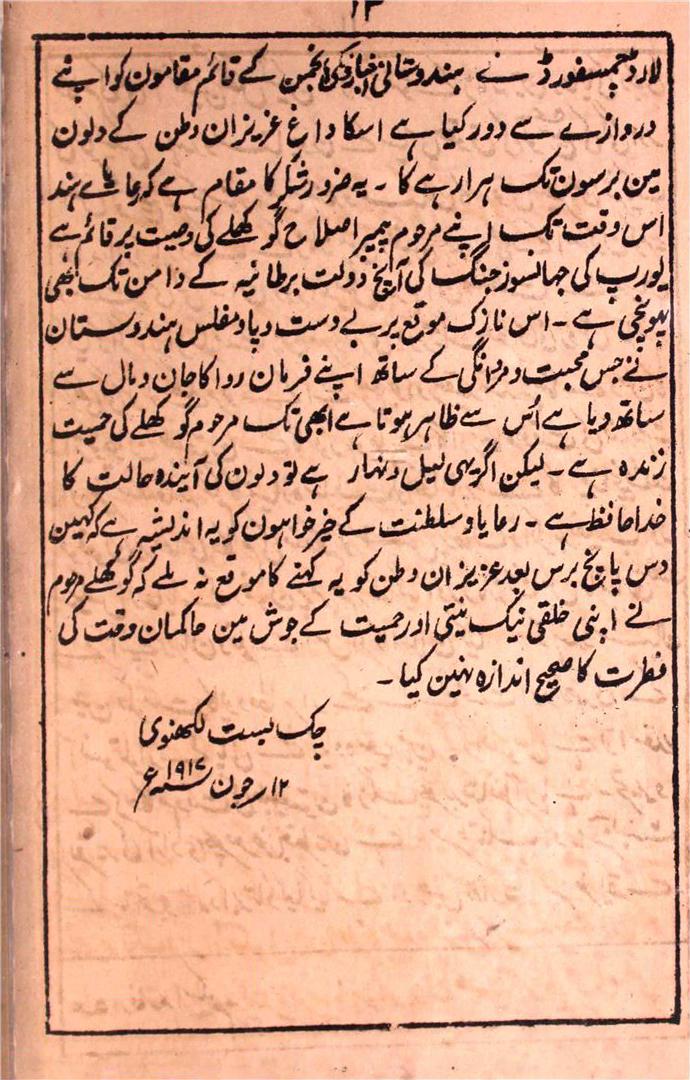 ۱۳
لارڈ چمسفورڈ نے ہندوستانی اخبارونکی انجمن کے قائم مقامون کو اپنے
دروازے سے دور کیا ہے اسکا داغ عزیزان وطن کے دلون
مین برسون تک ہرا رہے گا ۔ یہ ضرور شکر کا مقام ہے کہ رعایاے ہند
اس وقت تک اپنے مرحوم پیمبر اصلاح گوکھلے کی وصیت پر قائم ہے
یورپ کی جہانسوز جنگ کی آنچ دولت برطانیہ کے دامن تک بھی
پہونچی ہے ۔ اس نازک موقع پر بے دست و پا و مفلس ہندوستان
نے جس محبت و مردانگی کے ساتھ اپنے فرمان روا کا جان و مال سے
ساتھ دیا ہے اُس سے ظاہر ہوتا ہے ابھی تک مرحوم گوکھلے کی حمیت
زندہ ہے ۔ لیکن اگر یہی لیل و نہار ہے تو دلون کی آیندہ حالت کا
خدا حافظ ہے ۔ رعایا و سلطنت کے خیر خواہون کو یہ اندیشہ ہے کہ کہین
دس پانچ برس بعد عزیزان وطن کو یہ کہنے کا موقع نہ ملے کہ گوکھلے مرحوم
نے اپنی خلقی نیک نیتی اور حمیت کے جوش مین حاکمان وقت کی
فطرت کا صحیح اندازہ نہین کیا ۔
چک بست لکھنوی
۱۲ جون ۱۹۱۷ء